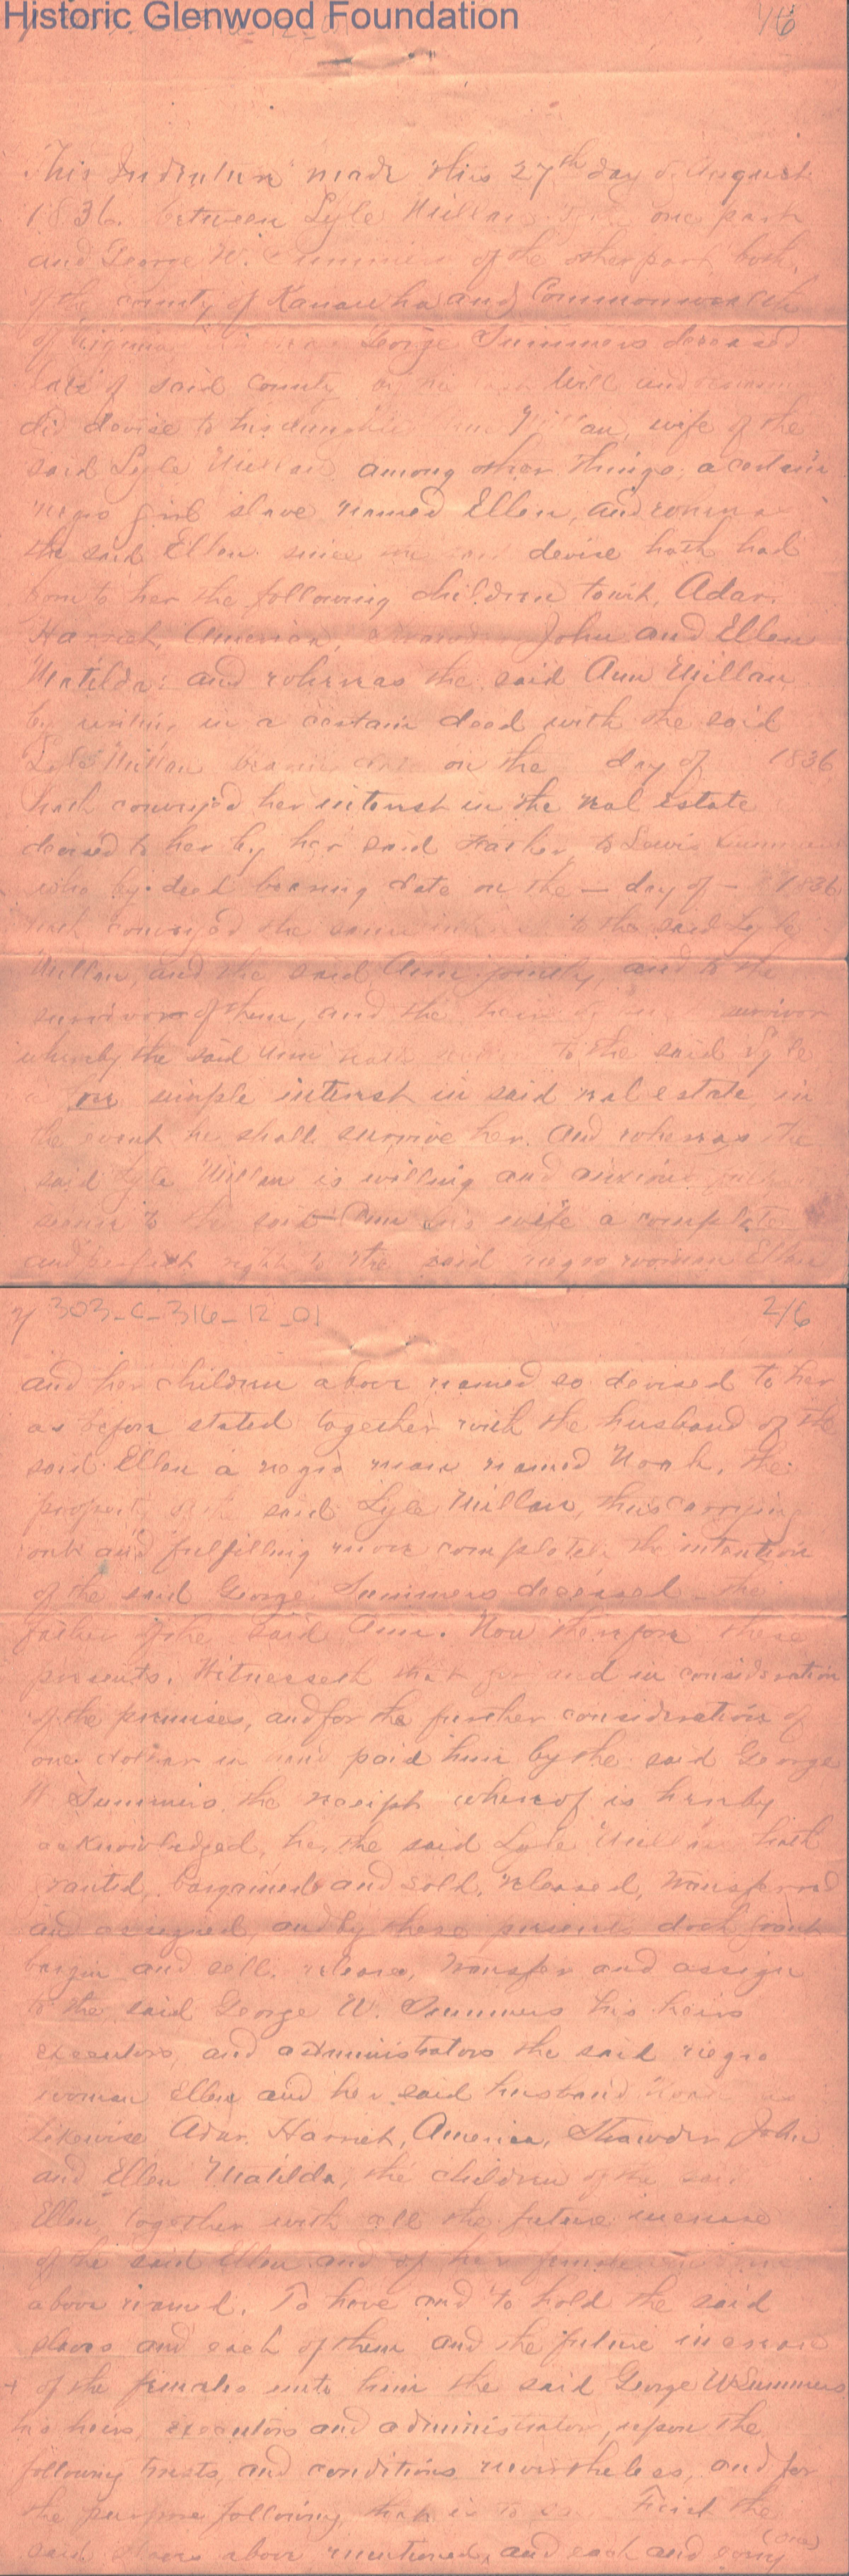 Historic Glenwood Foundation
This Indenture made this 27th day of August
1836. between Lyle Millan of the one part
and George W. Summers of the other part, both
of the county of Kanawha and Commonwealth
of Virginia George Summers deceased
late of said County by his Will and
did devise to his daughter Ann Millan, wife of the
said Lyle Millan among other things, a certain
negro girl slave named Ellen, and whereas
the said Ellen since the said devise hath had
born to her the following children towit, Adar
Harriet, America, John and Ellen
Matilda: and whereas the said Ann Millan
by uniting in a certain deed with the said
Lyle Millan bearing date on the day of 1836
hath conveyed her interest in the real estate
devised to her by her said Father, to Lewis Summers
who by deed bearing date on the — day of — 1836
hath conveyed the same to the said Lyle
Millan, and the said Ann jointly, and to the
survivor of them, and the heirs of survivor
whereby the said Ann hath to the said Lyle
simple interest in said real estate, in
the event he shall survive her. and whereas the
said Lyle Millan is willing and anxious
secure to the said Ann his wife a complete
and perfect right to the said negro woman Ellen
303-C-316-12-01 2/6
and her children above named so devised to her
as before stated together with the husband of the
said Ellen a negro man named Noah, the
property of the said Lyle Millan, thus carrying
out and fulfilling more completely the intention
of the said George Summers deceased - the
father of the said Ann. Now therefore these
presents, Witnesseth that for and in consideration
of the premises, and for the further consideration of
one dollar in hand paid him by the said George
W Summers the receipt whereof is hereby
acknowledged, he, the said Lyle Millan hath
granted, bargained and sold, released, transferred
and assigned, and by these presents doth grant
bargin and sell, release, transfer and assign
to the said George W. Summers his heirs
executors, and administrators the said negro
woman Ellen and her said husband Noah
likewise Adar, Harriet, America, John
and Ellen Matilda, the children of the said
Ellen, together with all the future increase
of the said Ellen and of her female
above named. To have and to hold the said
slaves and each of them and the future increase
of the females unto him the said George W Summers
his heirs, executors and administrators, upon the
following trusts, and conditions nevertheless, and for
the purpose following, that is to say First the
said slaves above mentioned, and each and every (one)